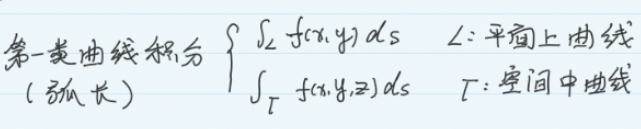 第一类曲线积分 { ∫_L f(x,y) ds L:平面上曲线
(弧长) ∫_Γ f(x,y,z) ds Γ:空间中曲线